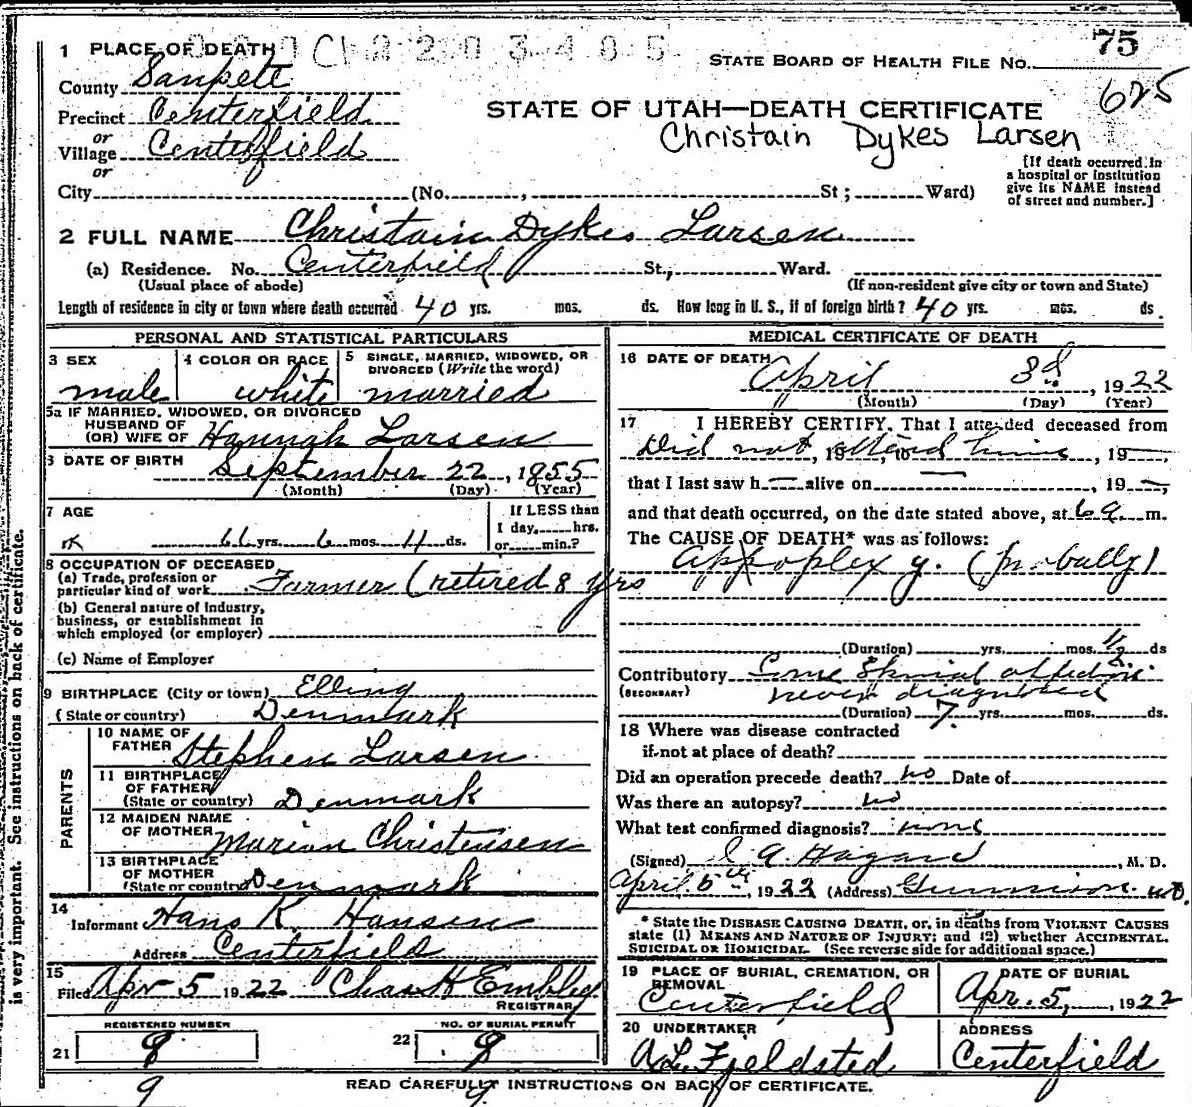 75
1 PLACE OF DEATH
STATE BOARD OF HEALTH FILE No.
625
County Sanpete
STATE OF UTAH—DEATH CERTIFICATE
Precinct Centerfield
Christain Dykes Larsen
or
Village Centerfield
or
[If death occurred in
a hospital or institution
give its NAME instead
of street and number.]
City (No. , St ; Ward)
2 FULL NAME Christain Dykes Larsen
(a) Residence. No. Centerfield St., Ward.
(Usual place of abode) (If non-resident give city or town and State)
Length of residence in city or town where death occurred 40 yrs. mos. ds. How long in U. S., if of foreign birth? 40 yrs. mos. ds.
PERSONAL AND STATISTICAL PARTICULARS
3 SEX
male
4 COLOR OR RACE
white
5 SINGLE, MARRIED, WIDOWED, OR
DIVORCED (Write the word)
married
5a IF MARRIED, WIDOWED, OR DIVORCED
HUSBAND OF
(OR) WIFE OF Hannah Larsen
6 DATE OF BIRTH
September 22, 1855
(Month) (Day) (Year)
7 AGE
66 yrs. 6 mos. 11 ds.
If LESS than
1 day, hrs.
or min.?
8 OCCUPATION OF DECEASED
(a) Trade, profession or
particular kind of work Farmer (retired 8 yrs
(b) General nature of industry,
business, or establishment in
which employed (or employer)
(c) Name of Employer
9 BIRTHPLACE (City or town) Elling
(State or country) Denmark
PARENTS
10 NAME OF
FATHER Stephen Larsen
11 BIRTHPLACE
OF FATHER
(State or country) Denmark
12 MAIDEN NAME
OF MOTHER Marian Christensen
13 BIRTHPLACE
OF MOTHER
(State or country) Denmark
14
Informant Hans K. Hansen
Address Centerfield
15
Filed Apr 5 1922 Chas H Embley
REGISTRAR
REGISTERED NUMBER
21 9
NO. OF BURIAL PERMIT
22 9
MEDICAL CERTIFICATE OF DEATH
16 DATE OF DEATH
April 3d, 1922
(Month) (Day) (Year)
17 I HEREBY CERTIFY, That I attended deceased from
Did not attend him, 19
that I last saw h alive on , 19
and that death occurred, on the date stated above, at 6 a m.
The CAUSE OF DEATH* was as follows:
Appoplexy. (probally)
(Duration) yrs. mos. 1/2 ds
Contributory Some affection
(SECONDARY) never diagnosed
(Duration) 7 yrs. mos. ds.
18 Where was disease contracted
if not at place of death?
Did an operation precede death? no Date of
Was there an autopsy? no
What test confirmed diagnosis? none
(Signed) Hagard, M. D.
April 5th, 1922 (Address) Gunnison
* State the DISEASE CAUSING DEATH, or, in deaths from VIOLENT CAUSES
state (1) MEANS AND NATURE OF INJURY; and (2) whether ACCIDENTAL,
SUICIDAL OR HOMICIDAL. (See reverse side for additional space.)
19 PLACE OF BURIAL, CREMATION, OR
REMOVAL
Centerfield
DATE OF BURIAL
Apr. 5, 1922
20 UNDERTAKER
A L Fjeldsted
ADDRESS
Centerfield
READ CAREFULLY INSTRUCTIONS ON BACK OF CERTIFICATE.
9
9
is very important. See instructions on back of certificate.